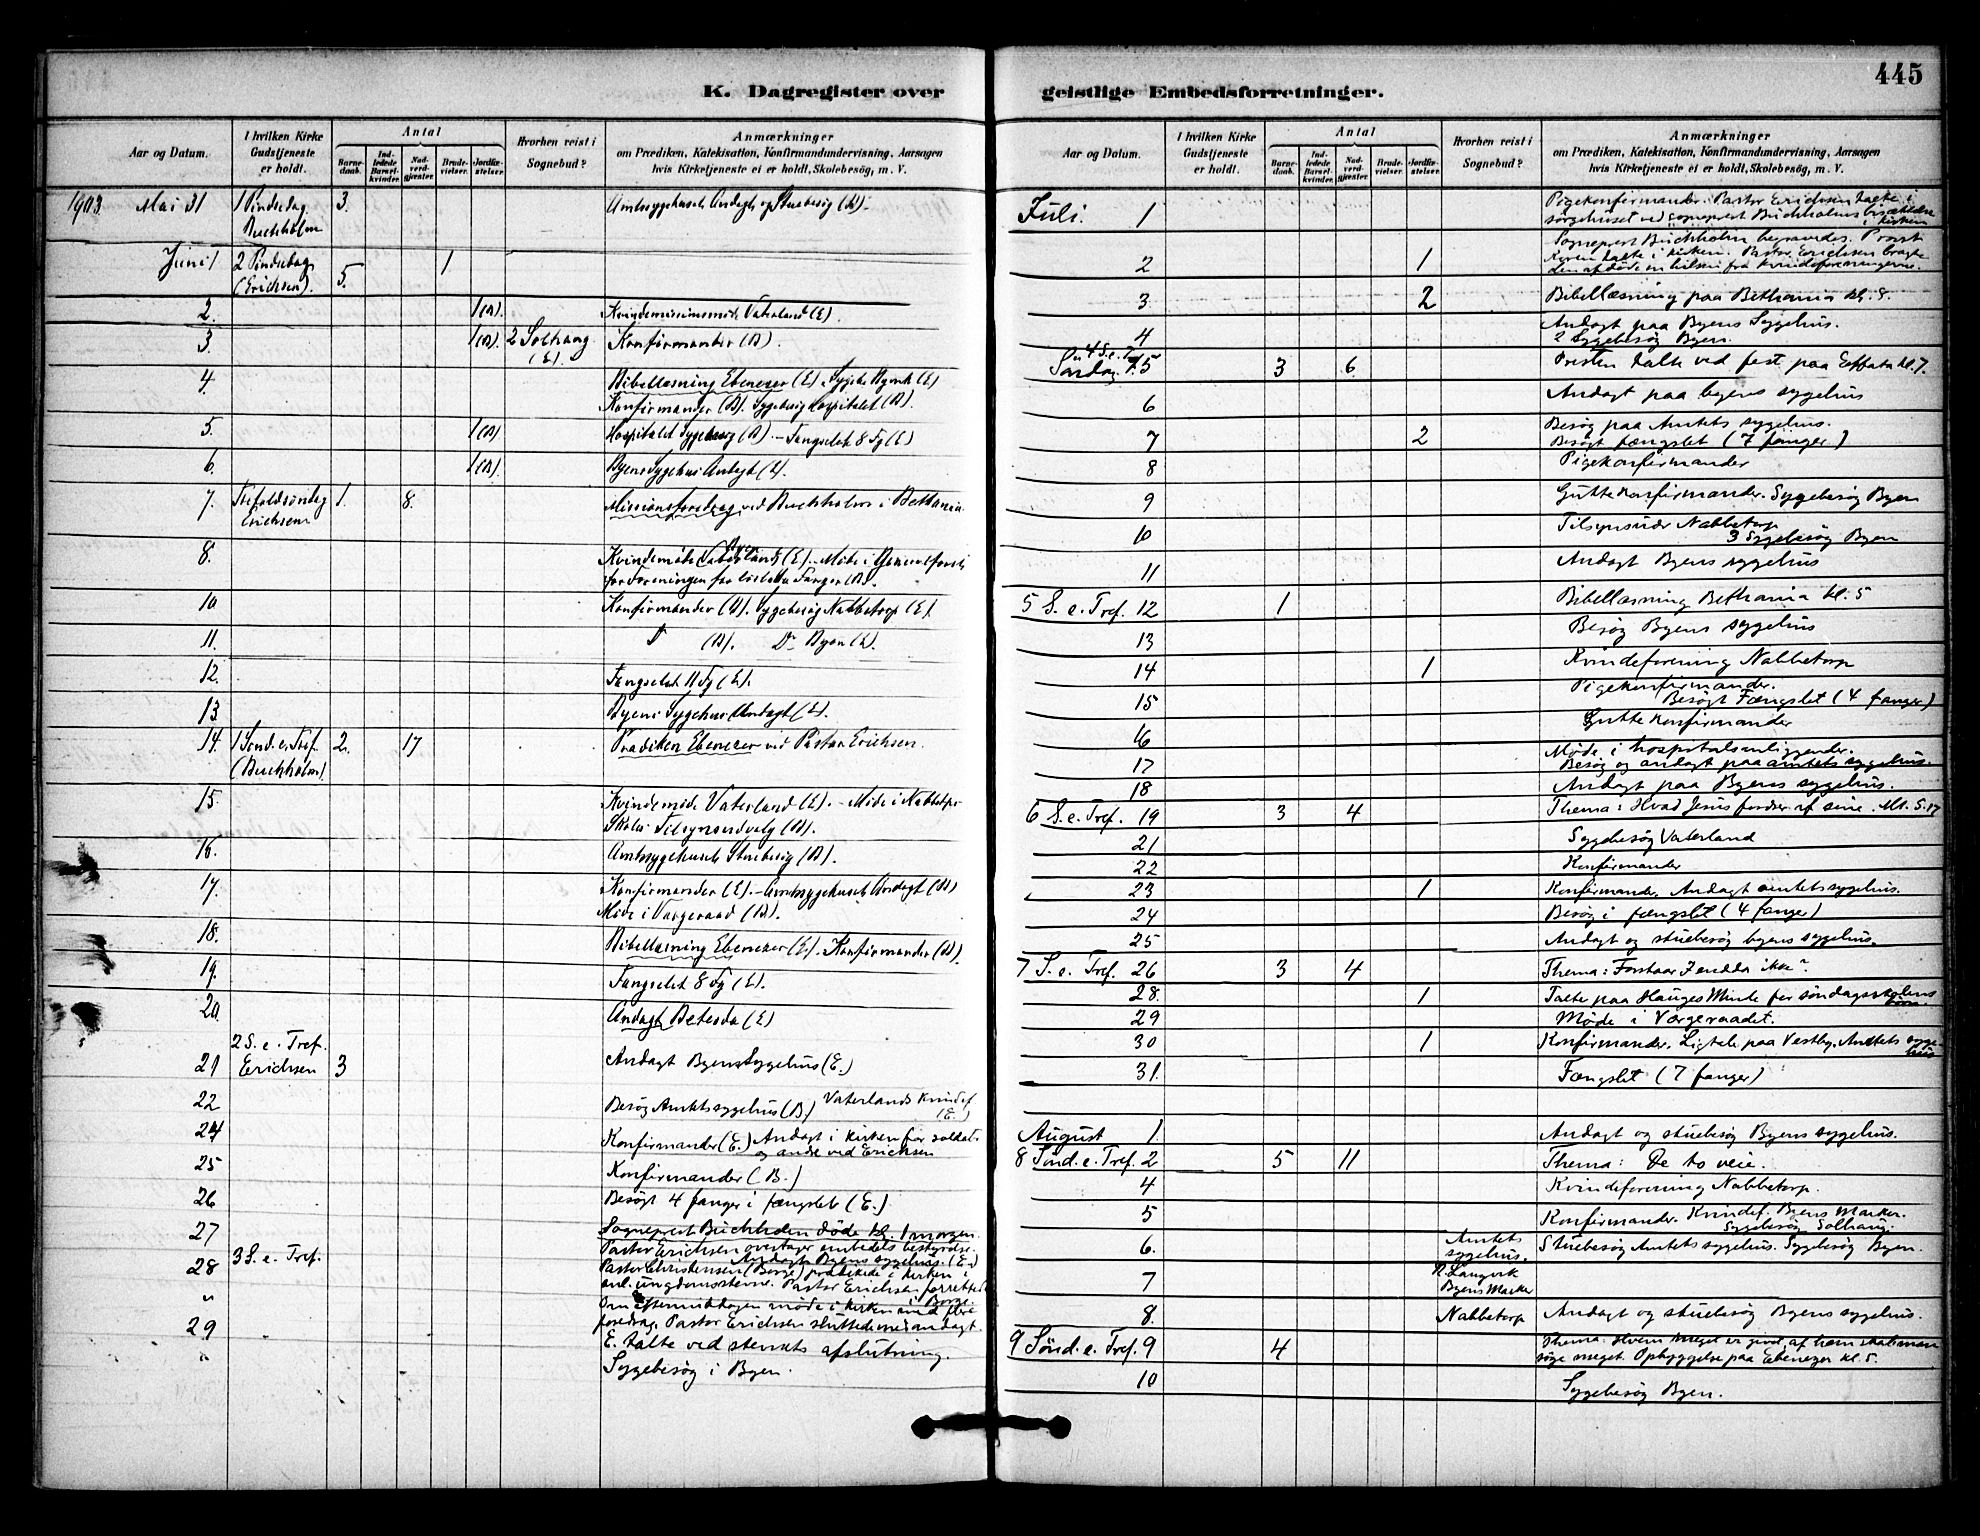 445
K. Dagregister over geistlige Embedsforretninger.
Aar og Datum.
I hvilken Kirke Gudstjeneste er holdt.
Antal
Barnedaab.
Indledede Barselkvinder.
Nadverdgjæster.
Brudevielser.
Jordfæstelser.
Hvorhen reist i Sognebud?
Anmærkninger
om Prædiken, Katekisation, Konfirmandundervisning, Aarsagen
hvis Kirketjeneste ei er holdt, Skolebesøg, m. V.
1903 Mai 31 1 Pinsedag 3.
Buchholm
Juni 1 2 Pinsedag 5. 1
(Erichsen)
2. 1(B) Kvindemissionsmøde Vaterland (E)
3. 1(B). 2 Solhaug (E) Konfirmander (B).
4. Bibellæsning Ebenezer (E).
Konfirmander (B). Sygebesøg Hospitalet (B).
5. 1(B) Hospitalet Sygebesøg (B) – Fængselet 8 Fg (E)
6. 1(B). Byens Sygehus Andagt (E).
7. Trefoldsøndag 1. 8. Missionsforedrag ved Buchholm i Bethania.
Erichsen
8. Kvindemøde Vaterland (E).
10 Konfirmander (B). Sygebesøg Nabbetorp (E).
11. (B). Do Byen (E).
12. Fængselet 11 Fg (E).
13. Byens Sygehus Andagt (E).
14. 1 Sønd. e. Tref. 2. 17 Prædiken Ebenezer ved Pastor Erichsen.
(Buchholm)
15. Kvindemøde Vaterland (E). – Møde i Nabbetorp
Skoles Tilsynsudvalg (B).
16. Amtssygehuset Stuebesøg (B).
17. Konfirmander (E). – Amtssygehuset Andagt (B)
Møde i Værgeraad (B).
18. Bibellæsning Ebenezer (E). Konfirmander (B).
19. Fængselet 8 Fg (E).
20. Andagt Betesda (E)
21 2 S. e. Tref. Erichsen 3 Andagt Byens Sygehus (E.)
22 Besøg Amtets sygehus (B.) Vaterlands Kvindef. (E.)
24 Konfirmander (E.) Andagt i kirken for soldater
og andre ved Erichsen
25 Konfirmander (B.)
26 Besøgt 4 fanger i fængslet (E.)
27 Sogneprest Buchholm døde kl. 1 morgen.
Pastor Erichsen overtager embedets bestyrelse.
Andagt Byens sygehus. (E.)
28 3 S. e. Tref. Pastor Christensen (Borge) prædikede i kirken i
anl. ungdomsstevne. Pastor Erichsen forrettede
" Om eftermiddagen møde i kirken med flere
foredrag. Pastor Erichsen sluttede med andagt.
29 E. talte ved stevnets afslutning.
" Sygebesøg i Byen.
Aar og Datum.
I hvilken Kirke Gudstjeneste er holdt.
Antal
Barnedaab.
Indledede Barselkvinder.
Nadverdgjæster.
Brudevielser.
Jordfæstelser.
Hvorhen reist i Sognebud?
Anmærkninger
om Prædiken, Katekisation, Konfirmandundervisning, Aarsagen
hvis Kirketjeneste ei er holdt, Skolebesøg, m. V.
Juli. 1 Pigekonfirmander. Pastor Erichsen talte i
sørgehuset ved sogneprest Buchholms
2 1 Sogneprest Buchholm begravedes. Provst
talte i kirken. Pastor Erichsen bragte
den afdøde en hilsen fra kvindeforeningerne.
3 2 Bibellæsning paa Bethania kl. 8.
4 Andagt paa Byens Sygehus.
2 Sygebesøg Byen.
4 S. e. T.
Søndag 5 3 6. Presten talte ved fest paa Effata kl. 7.
6 Andagt paa byens sygehus
7 2 Besøg paa Amtets sygehus.
Besøgt fængslet (7 fanger)
8 Pigekonfirmander
9 Guttekonfirmander. Sygebesøg Byen
10 Nabbetorp
3 Sygebesøg Byen
11 Andagt Byens sygehus
5 S. e. Tref. 12 1 Bibellæsning Bethania kl. 5
13 Besøg Byens sygehus
14 1 Kvindeforening Nabbetorp
15 Pigekonfirmander.
Besøgt Fængslet (4 fanger)
16 Guttekonfirmander
17 Møde i hospitalsanliggender.
Besøg og andagt paa amtets sygehus.
18 Andagt paa Byens sygehus.
6 S. e. Tref. 19 3 4 Thema: Hvad Jesus fordrer af sine. Mt. 5.17
21 Sygebesøg Vaterland
22 Konfirmander
23 1 Konfirmander. Andagt amtets sygehus.
24 Besøg i fængslet (4 fanger)
25 Andagt og stuebesøg byens sygehus.
7 S. e. Tref. 26 3 4 Thema: Forstaar I endda ikke?
28. 1 Talte paa Hauges Minde for søndagsskolens
29 Møde i Værgeraadet.
30 1 Konfirmander. Ligtale paa Vestby. Amtets sygehus
31. Fængslet (7 fanger)
August 1. Andagt og stuebesøg Byens sygehus.
8 Sønd. e. Tref. 2 5 11 Thema: De to veie.
4 Kvindeforening Nabbetorp.
5 Konfirmander. Kvindef. Byens Marker.
Sygebesøg Solhaug.
6. Amtets sygehus. Stuebesøg Amtets sygehus. Sygebesøg Byen.
7 N. Langvik
Byens Marker
8. Nabbetorp Andagt og stuebesøg Byens sygehus.
9 Sønd. e. Tref. 9 4 Thema: Hvem meget er givet, af ham skal man
søge meget. Opbyggelse paa Ebenezer kl. 5.
10 Sygebesøg Byen.